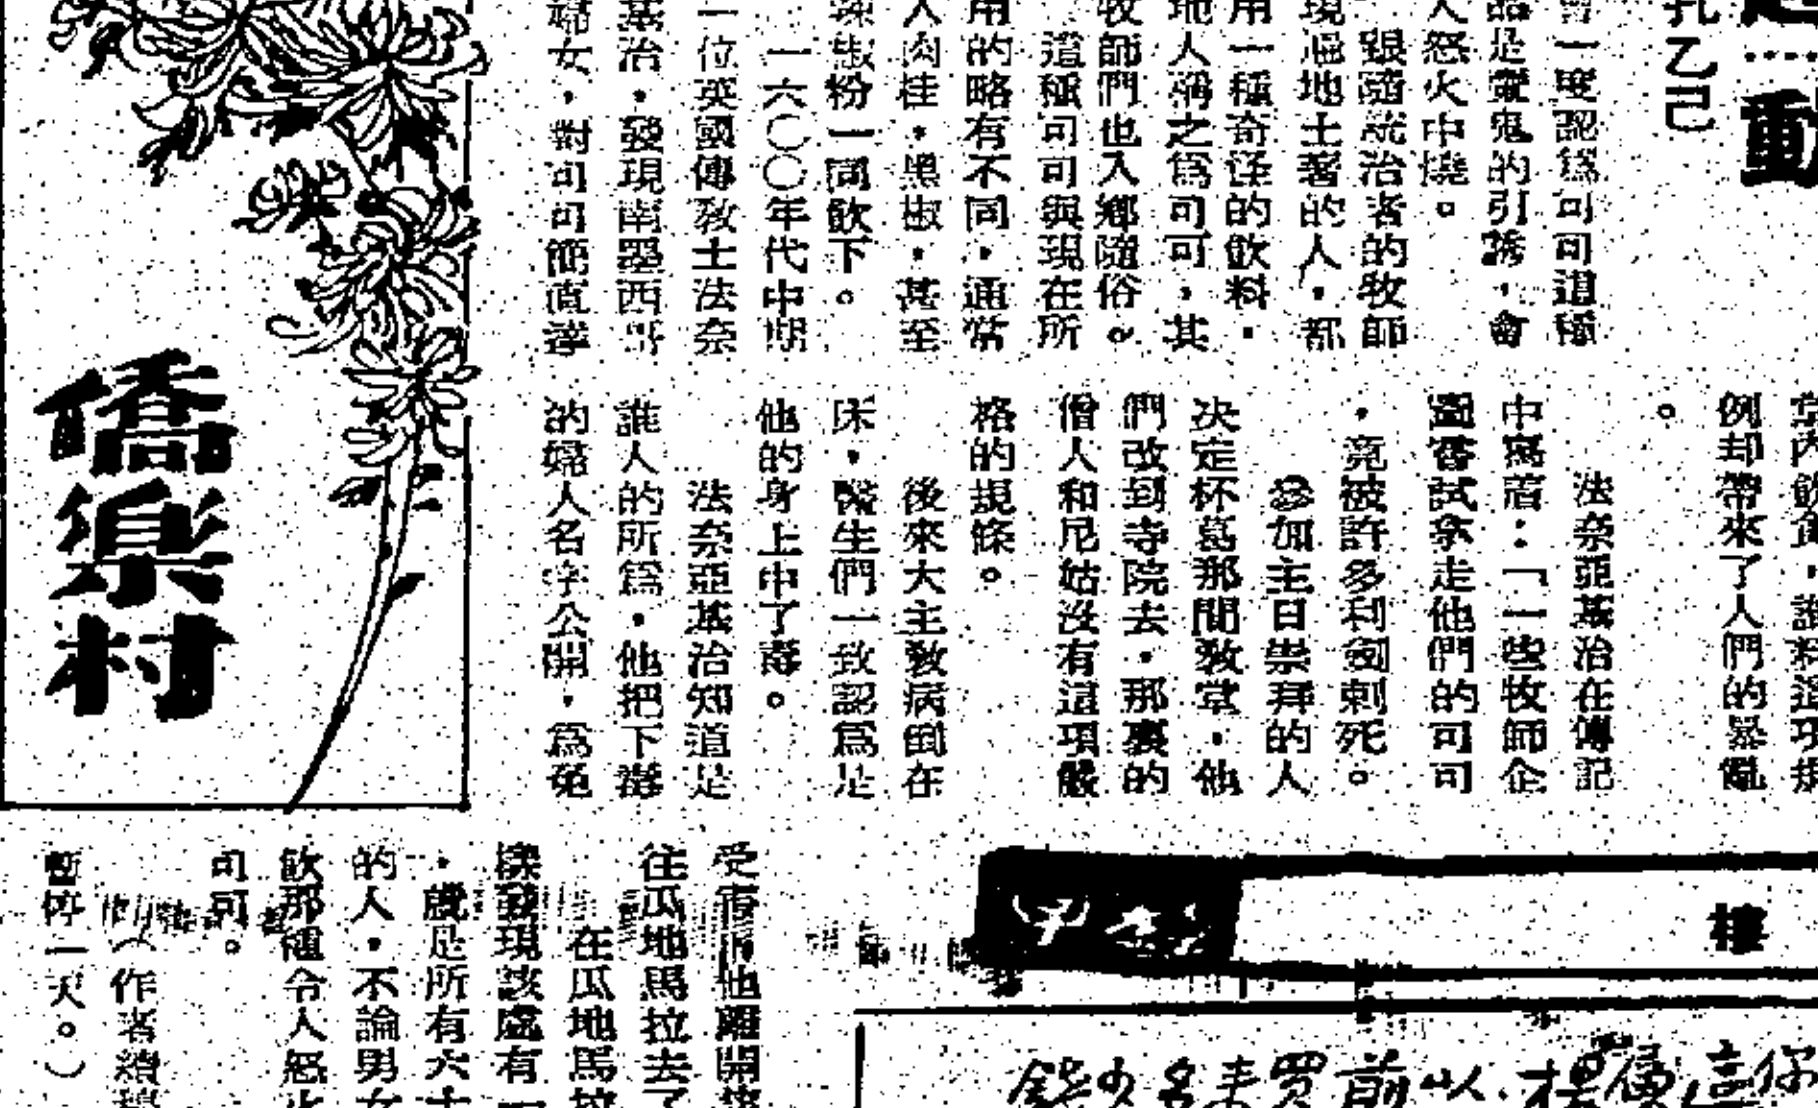 動
孔乙己
會一度認爲可可這種
品是魔鬼的引誘，會
人怒火中燒。
跟隨統治者的牧師
現過地土著的人，都
用一種奇怪的飲料，
地人稱之爲可可，其
牧師們也入鄉隨俗。
這種可可與現在所
用的略有不同，通常
人肉桂，黑椒，甚至
辣椒粉一同飲下。
一六〇〇年代中期
一位英國傳教士法奈
基治，發現南墨西哥
婦女，對可可簡直達
例却帶來了人們的暴亂
。
法奈亞基治在傳記
中寫着：「一些牧師企
圖嘗試拿走他們的可可
，竟被許多利劍刺死。
參加主日崇拜的人
決定杯葛那間敎堂，他
們改到寺院去，那裏的
僧人和尼姑沒有這項嚴
格的規條。
後來大主敎病倒在
床，醫生們一致認爲是
他的身上中了毒。
法奈亞基治知道是
誰人的所爲，他把下毒
的婦人名字公開，爲免
受害而他離開
往瓜地馬拉去了
在瓜地馬拉
發現該處有一
，就是所有六十
的人，不論男女
飲那種令人怒火
可可。
（作者續稿
暫停一天。）
僑樂村
樓